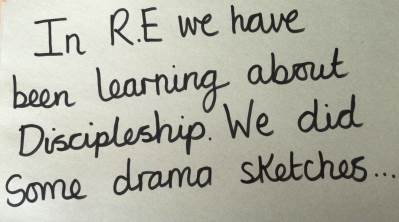 In R.E we have
been learning about
Discipleship. We did
Some drama sketches...